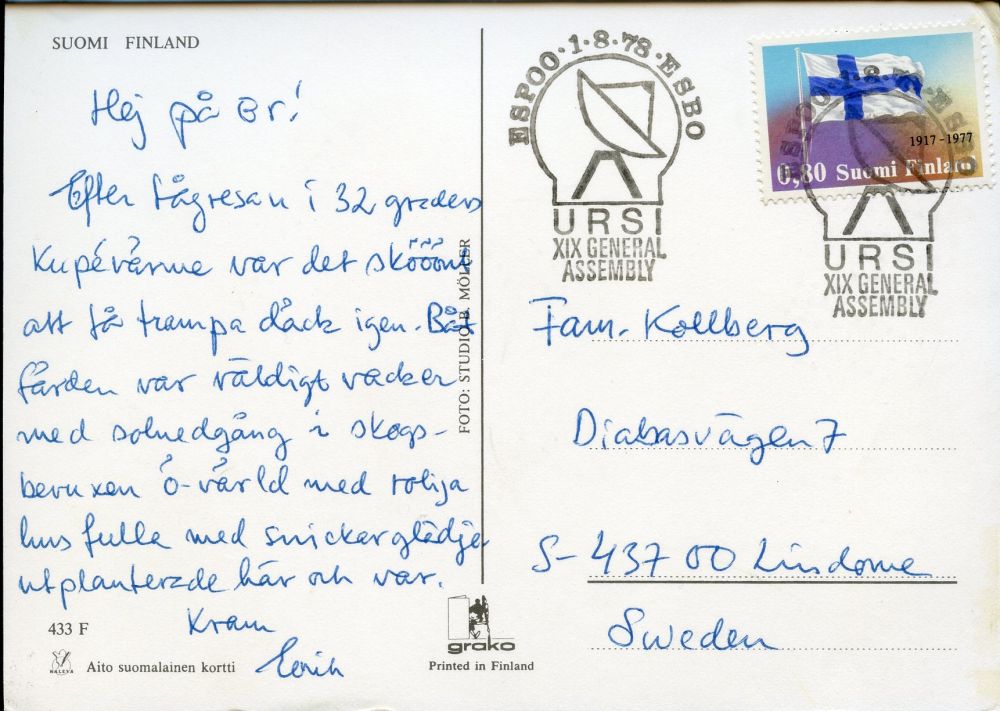 SUOMI FINLAND
Hej på er!
Efter tågresan i 32 graders
kupévärme var det sköööönt
att få trampa däck igen. Båt
färden var väldigt vacker
med solnedgång i skogs-
bevuxen ö-värld med roliga
hus fulla med snickarglädje
utplanterade här och var.
Kram
433 F
Aito suomalainen kortti
KALEVA
FOTO: STUDIO B. MÖLLER
grako
Printed in Finland
ESPOO·1·8·78·ESBO
URSI
XIX GENERAL
ASSEMBLY
1917-1977
0,80 Suomi Finland
ESPOO·1·8·78·ESBO
URSI
XIX GENERAL
ASSEMBLY
Fam. Kollberg
Diabasvägen 7
S-437 00 Lindome
Sweden